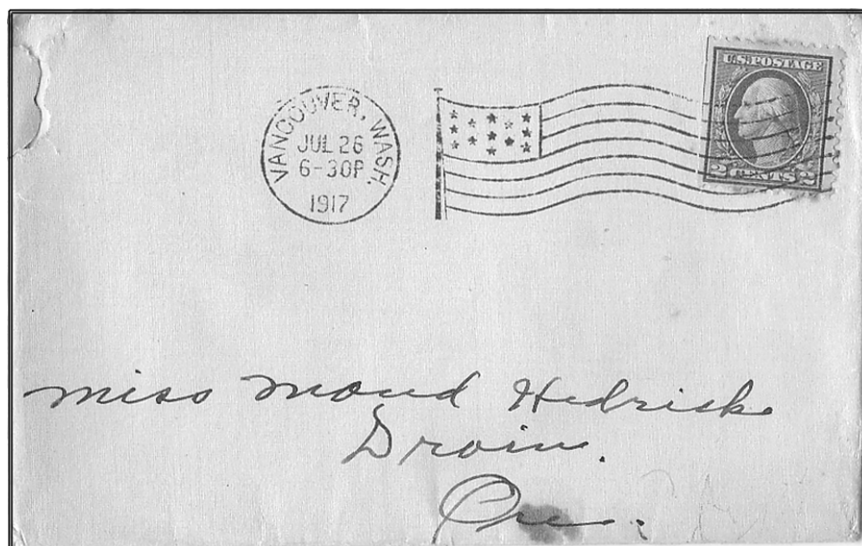 VANCOUVER, WASH.
JUL 26
6-30P
1917
U.S. POSTAGE
2 CENTS 2
Miss Maud Hedrick
Drain.
Ore.